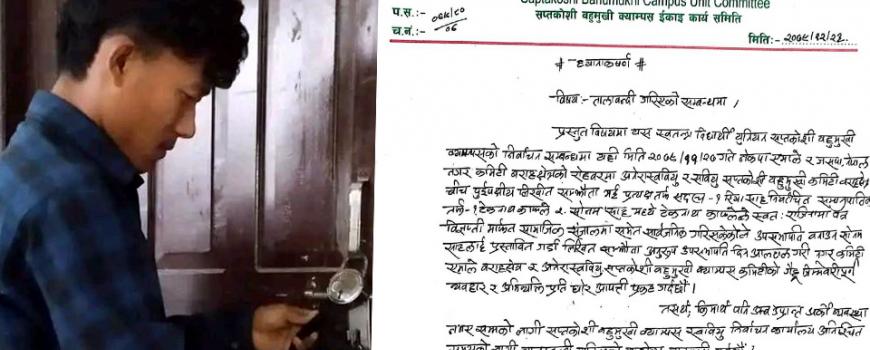 Saptakoshi Bahumukhi Campus Unit Committee
सप्तकोशी बहुमुखी क्याम्पस ईकाइ कार्य समिति
प.स.:- ०७९/८०
च.नं.:- ०६
मिति:- २०७९/१२/२१
# ध्यानाकर्षण #
विषय:- तालाबन्दी गरिएको सम्बन्धमा ।
प्रस्तुत विषयमा यस स्वतन्त्र विद्यार्थी युनियन सप्तकोशी बहुमुखी
क्याम्पसको निर्वाचन सम्बन्धमा यही मिति २०७९/११/२० गते नेकपा एमाले र जसपा, नेपाल
नगर कमिटी बराहक्षेत्रको रोहवरमा अनेरास्ववियु र सवियु सप्तकोशी बहुमुखी कमिटी
बीच दुईपक्षीय लिखित सम्झौता भई प्रत्यक्ष तर्फ सदस्य - १ रिया साह निर्वाचित समानुपातिक
तर्फ - १ टेकनाथ काफ्ले २. सोनम साह मध्ये टेकनाथ काफ्लेले स्वत: राजिनामा पत्र
विज्ञप्ती मार्फत सामाजिक संजालमा समेत सार्वजनिक गरिसकेकोले उपसभापति
साहलाई प्रस्तावित गर्दा लिखित सम्झौता अनुरूप उपसभापति दिन आलटाल गरी नगर कमिटी
एमाले बराहक्षेत्र र अनेरास्ववियु सप्तकोशी बहुमुखी क्याम्पस कमिटीको गैह्र जिम्मेवारीपूर्ण
व्यवहार र अभिव्यक्ति प्रति घोर आपत्ती प्रकट गर्दछौं ।
तसर्थ, अर्को व्यवस्था
नभए सम्मको लागी सप्तकोशी बहुमुखी क्याम्पस स्ववियु निर्वाचन कार्यालय अनिश्चित